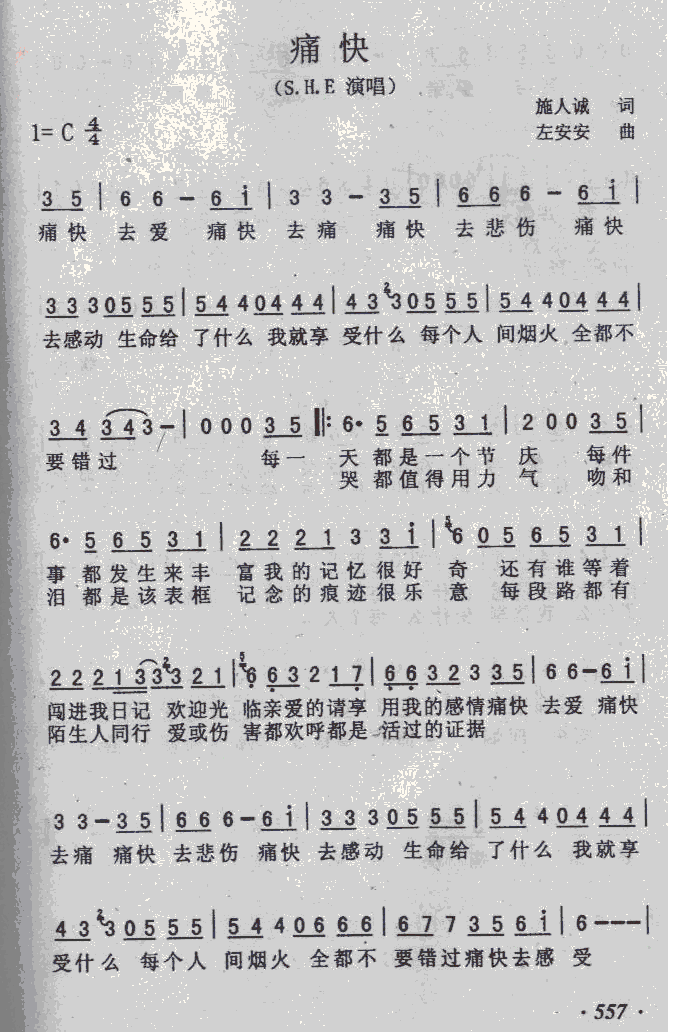 痛快
(S.H.E 演唱)
施人诚 词
1= C 4/4 左安安 曲
3 5 | 6 6 - 6 i | 3 3 - 3 5 | 6 6 6 - 6 i |
痛快 去爱 痛快 去痛 痛快 去悲伤 痛快
3 3 3 0 5 5 5 | 5 4 4 0 4 4 4 | 4 3 2 3 0 5 5 5 | 5 4 4 0 4 4 4 |
去感动 生命给 了什么 我就享 受什么 每个人 间烟火 全都不
3 4 3 4 3 - | 0 0 0 3 5 ‖: 6· 5 6 5 3 1 | 2 0 0 3 5 |
要错过 每一 天都是一个节 庆 每件
哭都值得用力 气 吻和
6· 5 6 5 3 1 | 2 2 2 1 3 3 i | 5 6 0 5 6 5 3 1 |
事都发生来丰 富我的记忆很好 奇 还有谁等着
泪都是该表框 记念的痕迹很乐 意 每段路都有
2 2 2 1 3 3 2 3 2 1 | 5 6 6 3 2 1 7 | 6 6 3 2 3 3 5 | 6 6 - 6 i |
闯进我日记 欢迎光 临亲爱的请享 用我的感情痛快 去爱 痛快
陌生人同行 爱或伤 害都欢呼都是 活过的证据
3 3 - 3 5 | 6 6 6 - 6 i | 3 3 3 0 5 5 5 | 5 4 4 0 4 4 4 |
去痛 痛快 去悲伤 痛快 去感动 生命给 了什么 我就享
4 3 2 3 0 5 5 5 | 5 4 4 0 6 6 6 | 6 7 7 3 5 6 i | 6 - - - |
受什么 每个人 间烟火 全都不 要错过痛快去感 受
· 557 ·